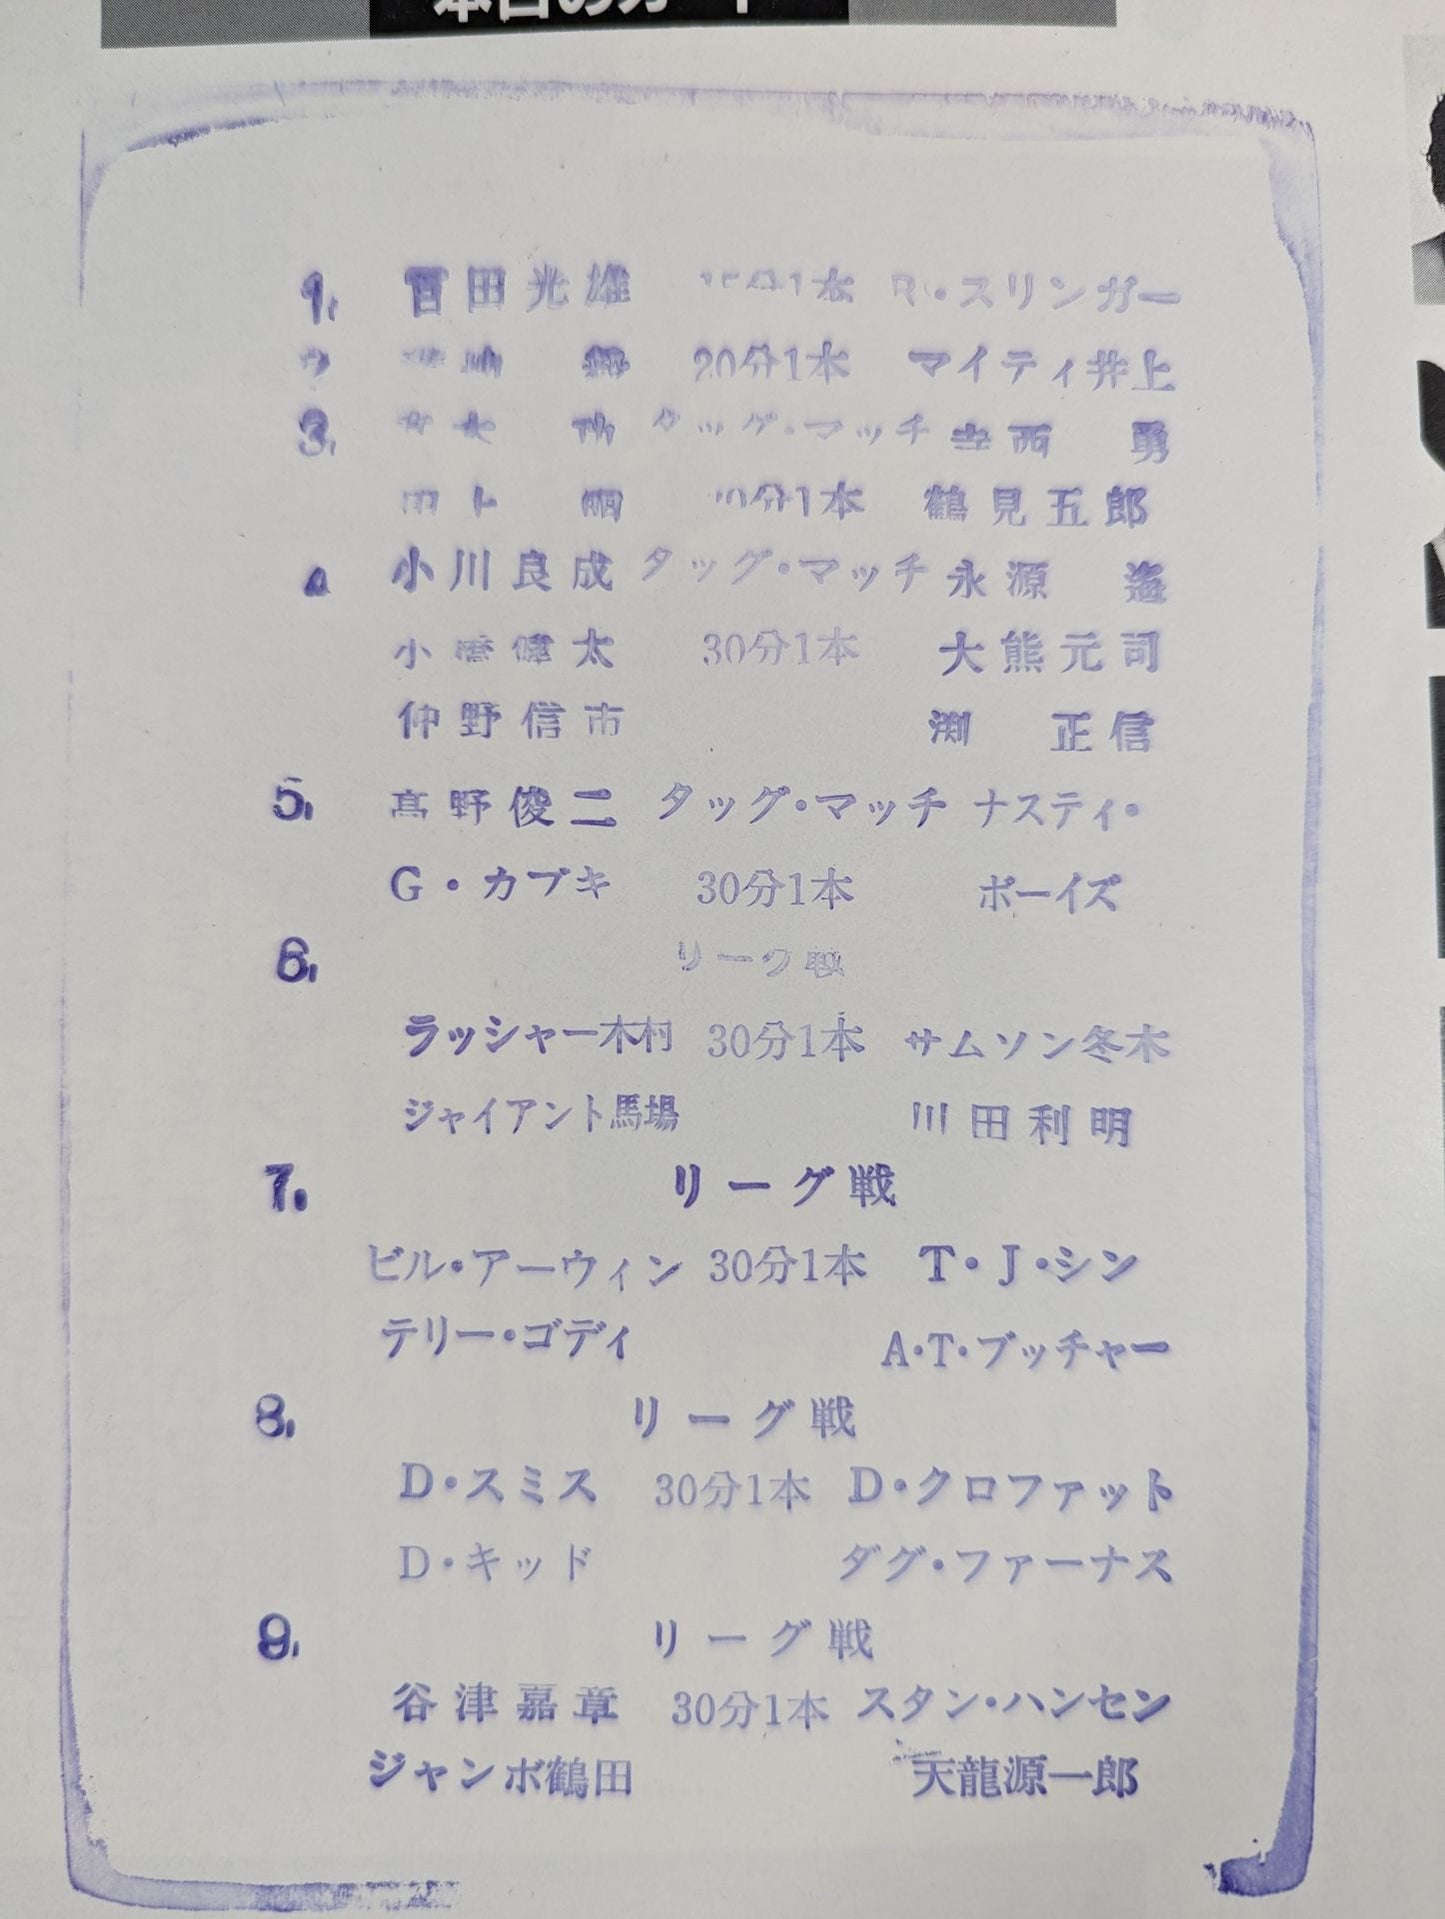 1. 百田光雄 15分1本 R・スリンガー
20分1本 マイティ井上
3. タッグ・マッチ 寺西 勇
30分1本 鶴見五郎
小川良成 タッグ・マッチ 永源 遙
小橋健太 30分1本 大熊元司
仲野信市 渕 正信
5. 高野俊二 タッグ・マッチ ナスティ・
G・カブキ 30分1本 ボーイズ
6. リーグ戦
ラッシャー木村 30分1本 サムソン冬木
ジャイアント馬場 川田利明
7. リーグ戦
ビル・アーウィン 30分1本 T・J・シン
テリー・ゴディ A・T・ブッチャー
8. リーグ戦
D・スミス 30分1本 D・クロファット
D・キッド ダグ・ファーナス
9. リーグ戦
谷津嘉章 30分1本 スタン・ハンセン
ジャンボ鶴田 天龍源一郎